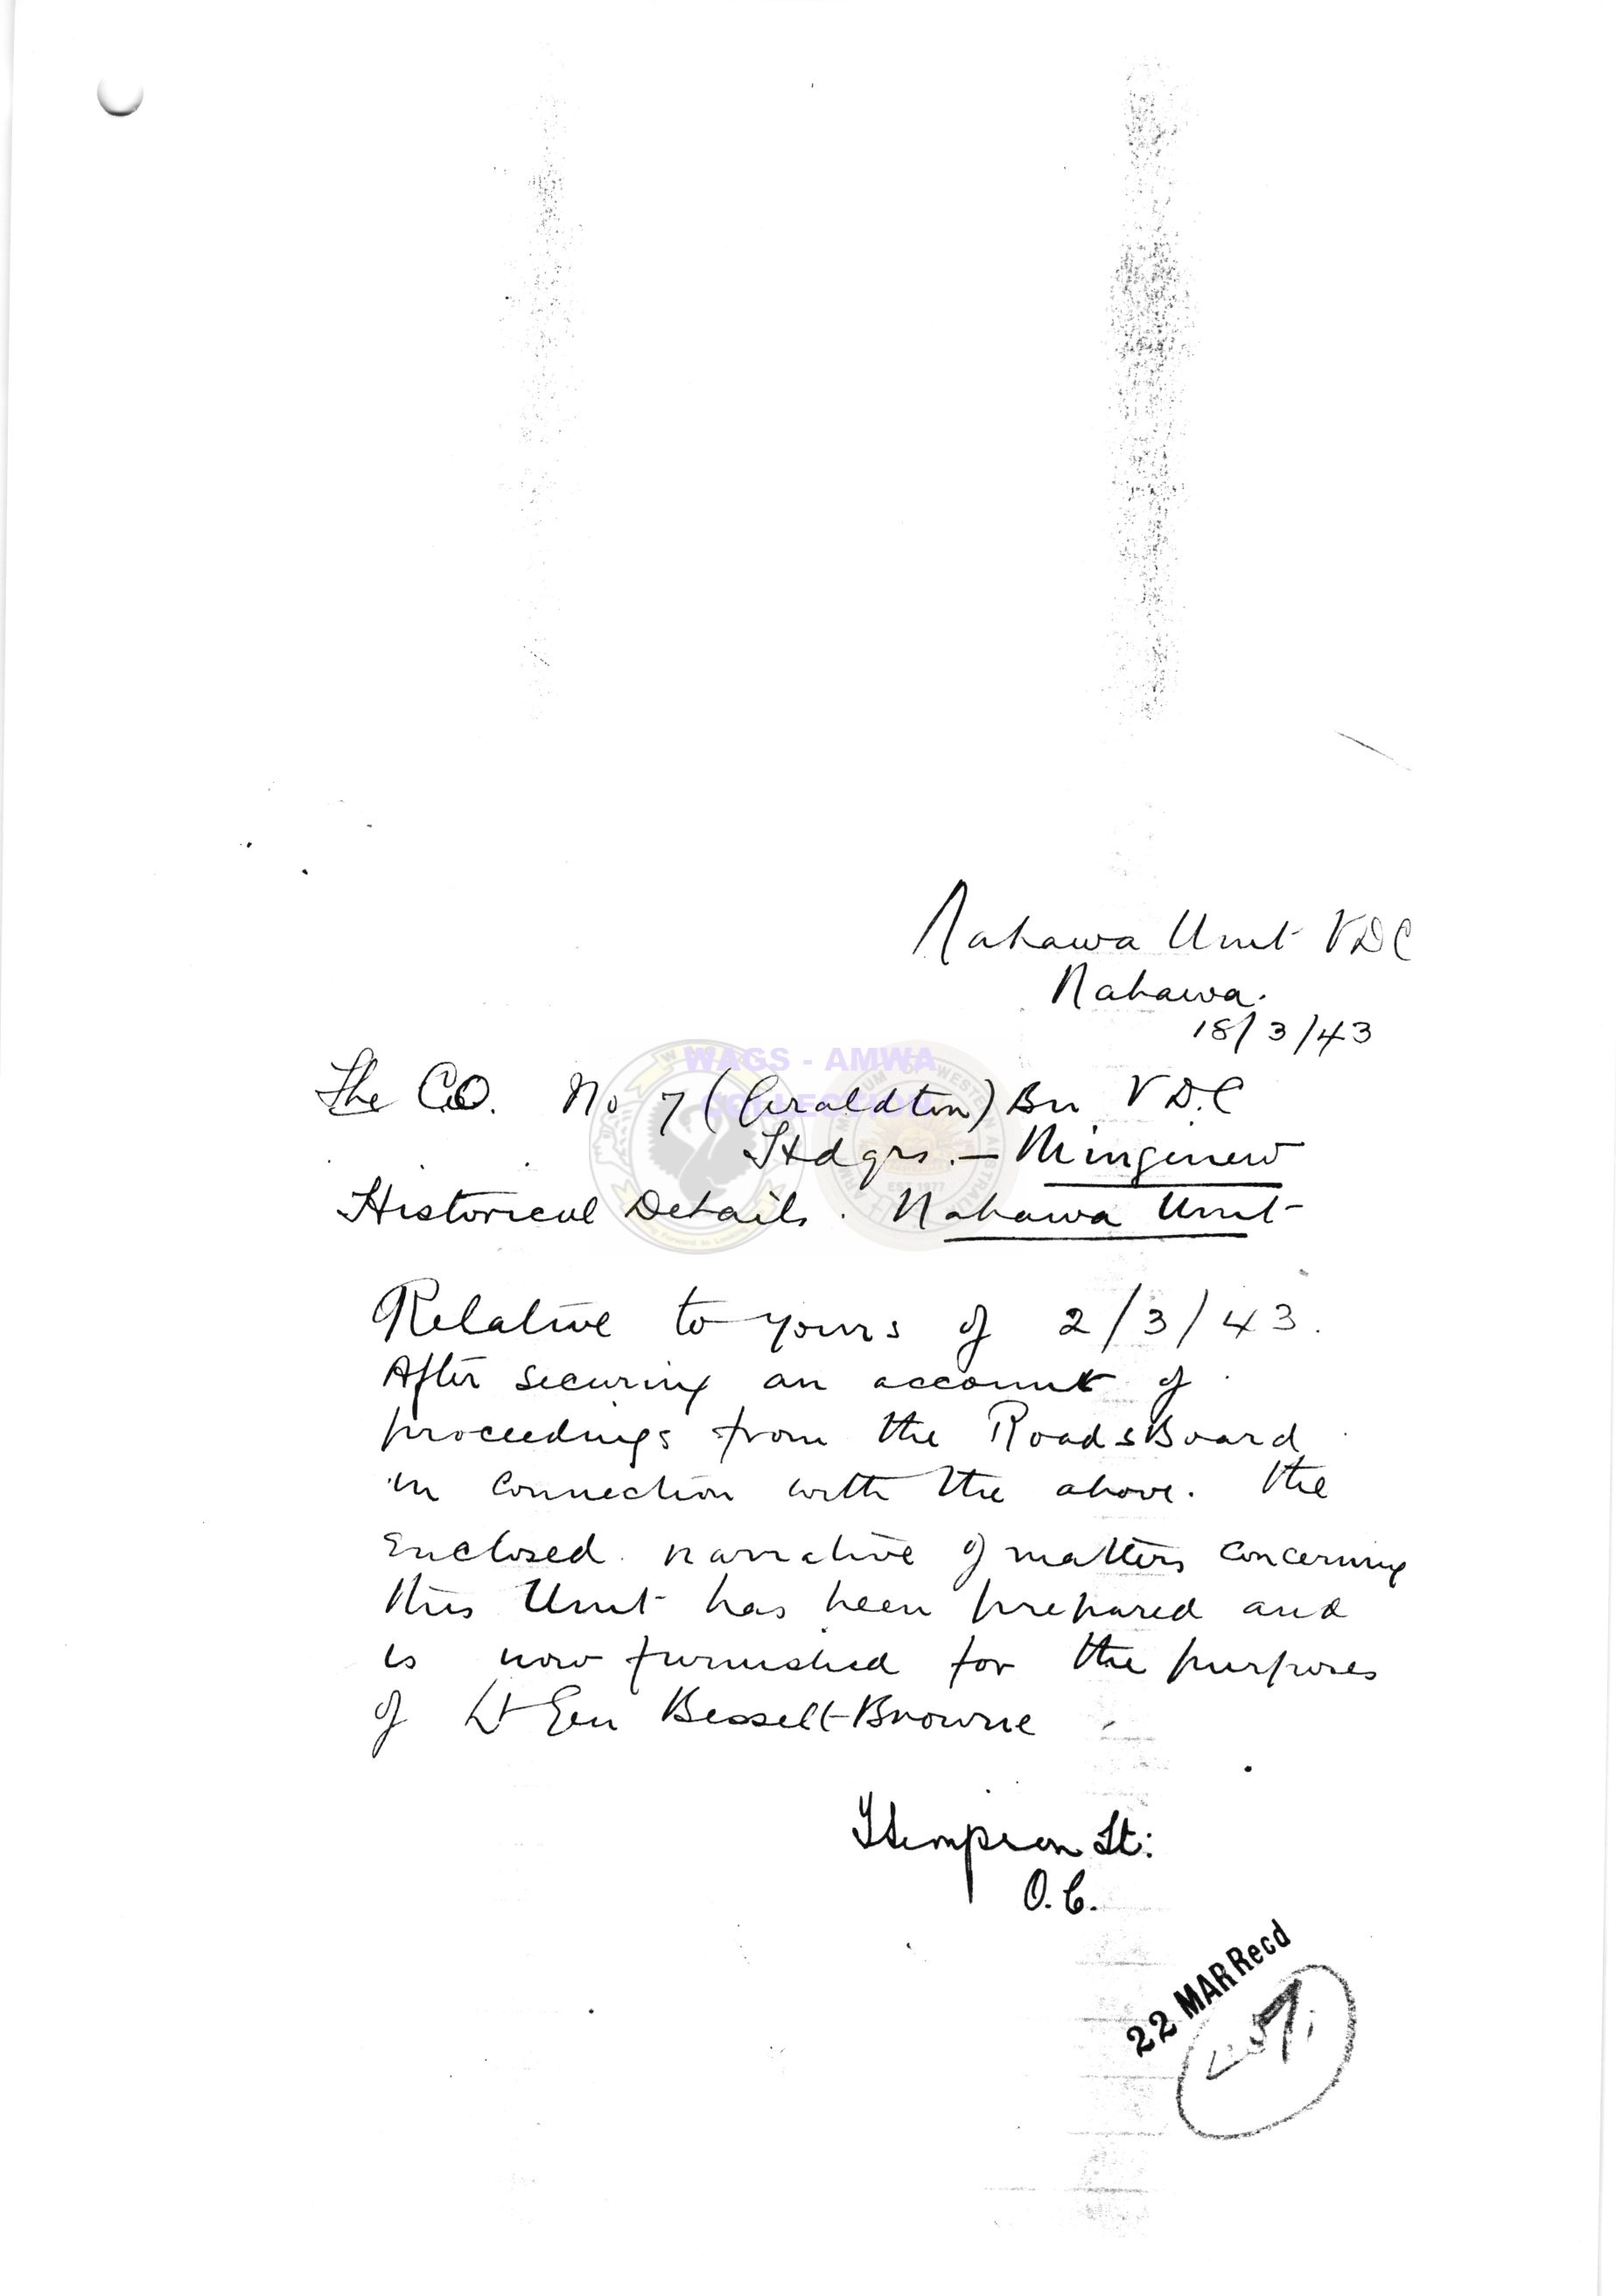 Nabawa Unit VDC
Nabawa.
18/3/43
WAGS - AMWA
COLLECTION
The CO. No 7 (Geraldton) Bn V.D.C
Hdqrs. — Mingenew
Historical Details. Nabawa Unit
EST 1977
Relative to yours of 2/3/43.
After securing an account of
proceedings from the Roads Board
in connection with the above. the
enclosed narrative of matters concerning
this Unit has been prepared and
is now furnished for the purposes
of Lt Gen Bessell-Browne
Lt:
O.C.
22 MAR Recd